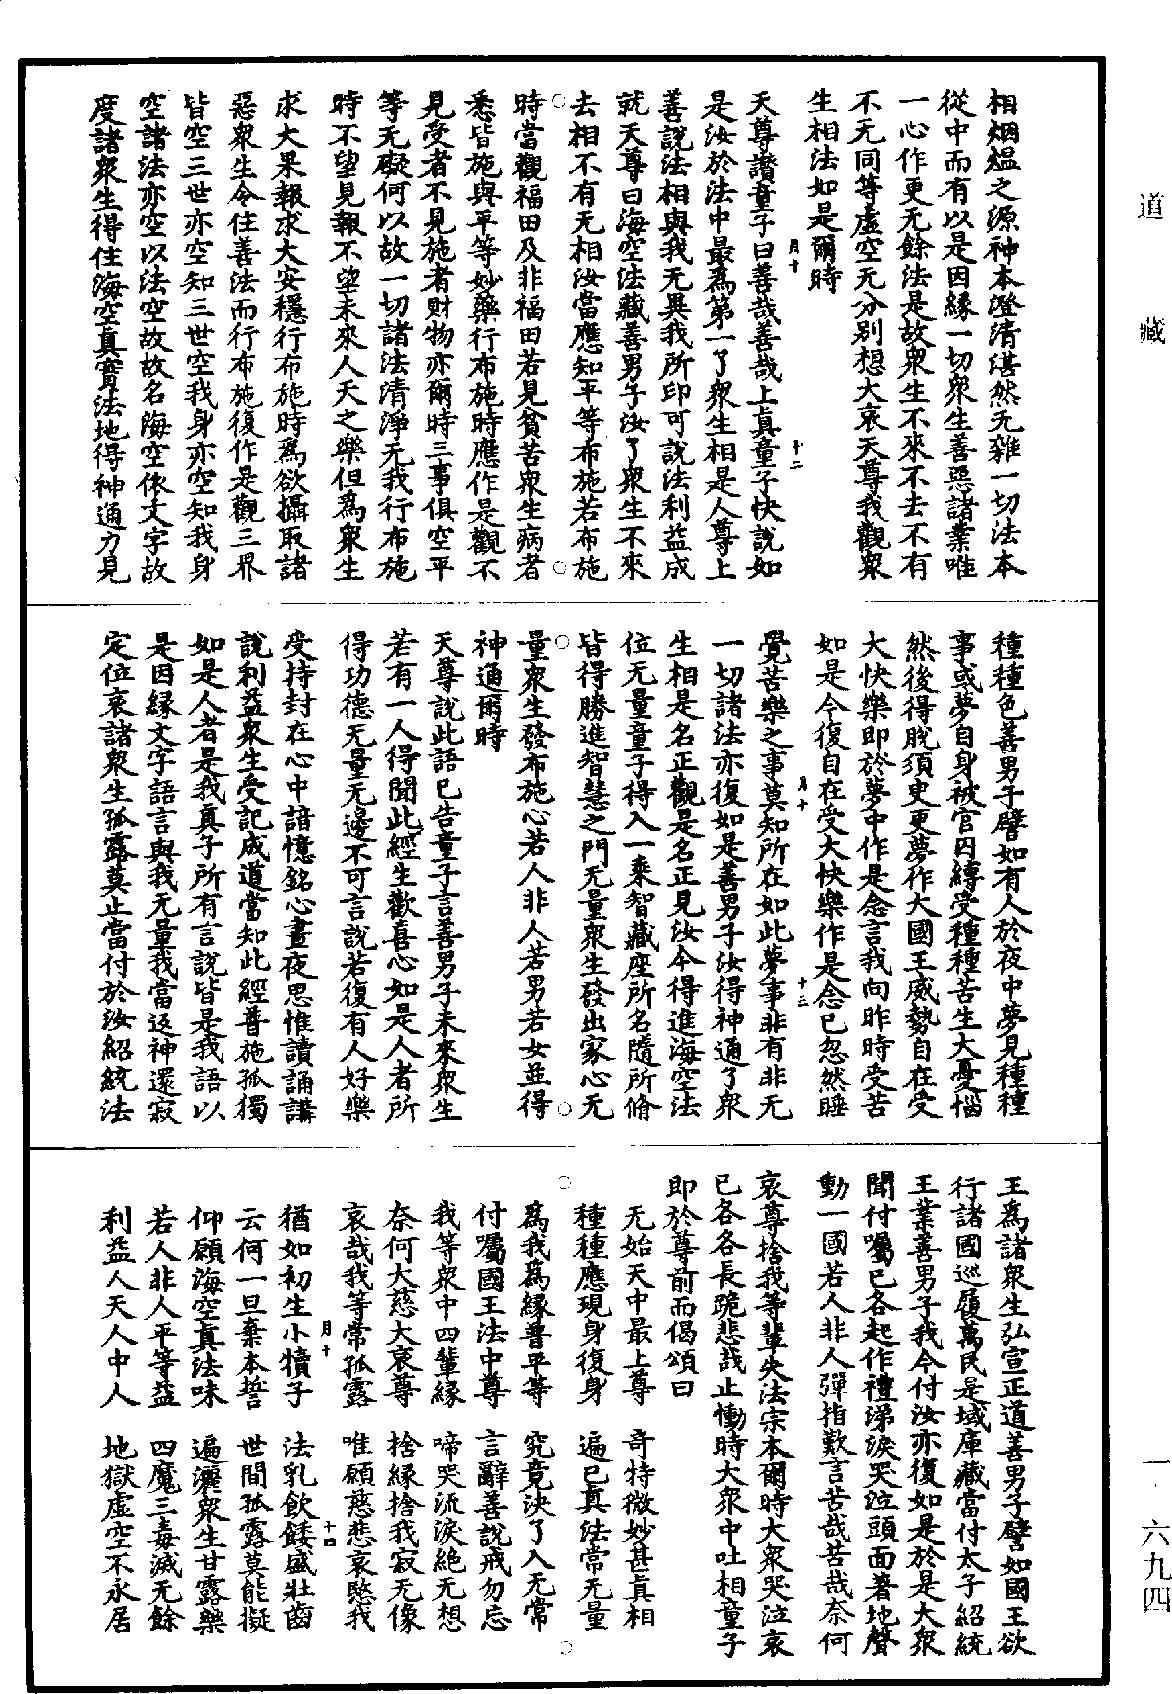 道藏
一·六九四
相烟煴之源神本澄清湛然无雜一切法本
從中而有以是因緣一切衆生善惡諸業唯
一心作更无餘法是故衆生不來不去不有
不无同等虛空无分别想大哀天尊我觀衆
生相法如是爾時
月十
十二
天尊讚童子曰善哉善哉上真童子快說如
是汝於法中最爲第一了衆生相是人尊上
善說法相與我无異我所印可說法利益成
就天尊曰海空法藏善男子汝了衆生不來
去相不有无相汝當應知平等布施若布施
時當觀福田及非福田若見貧苦衆生病者
悉皆施與平等妙藥行布施時應作是觀不
見受者不見施者財物亦爾時三事俱空平
等无礙何以故一切諸法清淨无我行布施
時不望見報不望未來人天之樂但爲衆生
求大果報求大安穩行布施時爲欲攝取諸
惡衆生令住善法而行布施復作是觀三界
皆空三世亦空知三世空我身亦空知我身
空諸法亦空以法空故故名海空依文字故
度諸衆生得住海空真實法地得神通力見
種種色善男子譬如有人於夜中夢見種種
事或夢自身被官囚縛受種種苦生大憂惱
然後得脫須臾更夢作大國王威勢自在受
大快樂即於夢中作是念言我向昨時受苦
如是今復自在受大快樂作是念已忽然睡
月十
十三
覺苦樂之事莫知所在如此夢事非有非无
一切諸法亦復如是善男子汝得神通了衆
生相是名正觀是名正見汝今得進海空法
位无量童子得入一乘智藏座所名隨所脩
皆得勝進智慧之門无量衆生發出家心无
量衆生發布施心若人非人若男若女並得
神通爾時
天尊說此語已告童子言善男子未來衆生
若有一人得聞此經生歡喜心如是人者所
得功德无量无邊不可言說若復有人好樂
受持封在心中諳憶銘心晝夜思惟讀誦講
說利益衆生受記成道當知此經普施孤獨
如是人者是我真子所有言說皆是我語以
是因緣文字語言與我无量我當返神還寂
定位哀諸衆生孤露莫止當付於汝紹統法
王爲諸衆生弘宣正道善男子譬如國王欲
行諸國巡履萬民是域庫藏當付太子紹統
王業善男子我今付汝亦復如是於是大衆
聞付囑已各起作禮涕淚哭泣頭面著地聲
動一國若人非人彈指歎言苦哉苦哉奈何
哀尊捨我等輩失法宗本爾時大衆哭泣哀
已各各長跪悲哉止慟時大衆中吐相童子
即於尊前而偈頌曰
无始天中最上尊　奇特微妙甚真相
種種應現身復身　遍已真法常无量
爲我爲緣普平等　究竟決了入无常
付囑國王法中尊　言辭善說戒勿忘
我等衆中四輩緣　啼哭流淚絕无想
奈何大慈大哀尊　捨緣捨我寂无像
哀哉我等常孤露　唯願慈悲哀愍我
月十
十四
猶如初生小犢子　法乳飲餧盛壯齒
云何一旦棄本誓　世間孤露莫能擬
仰願海空真法味　遍灑衆生甘露藥
若人非人平等益　四魔三毒滅无餘
利益人天人中人　地獄虛空不永居